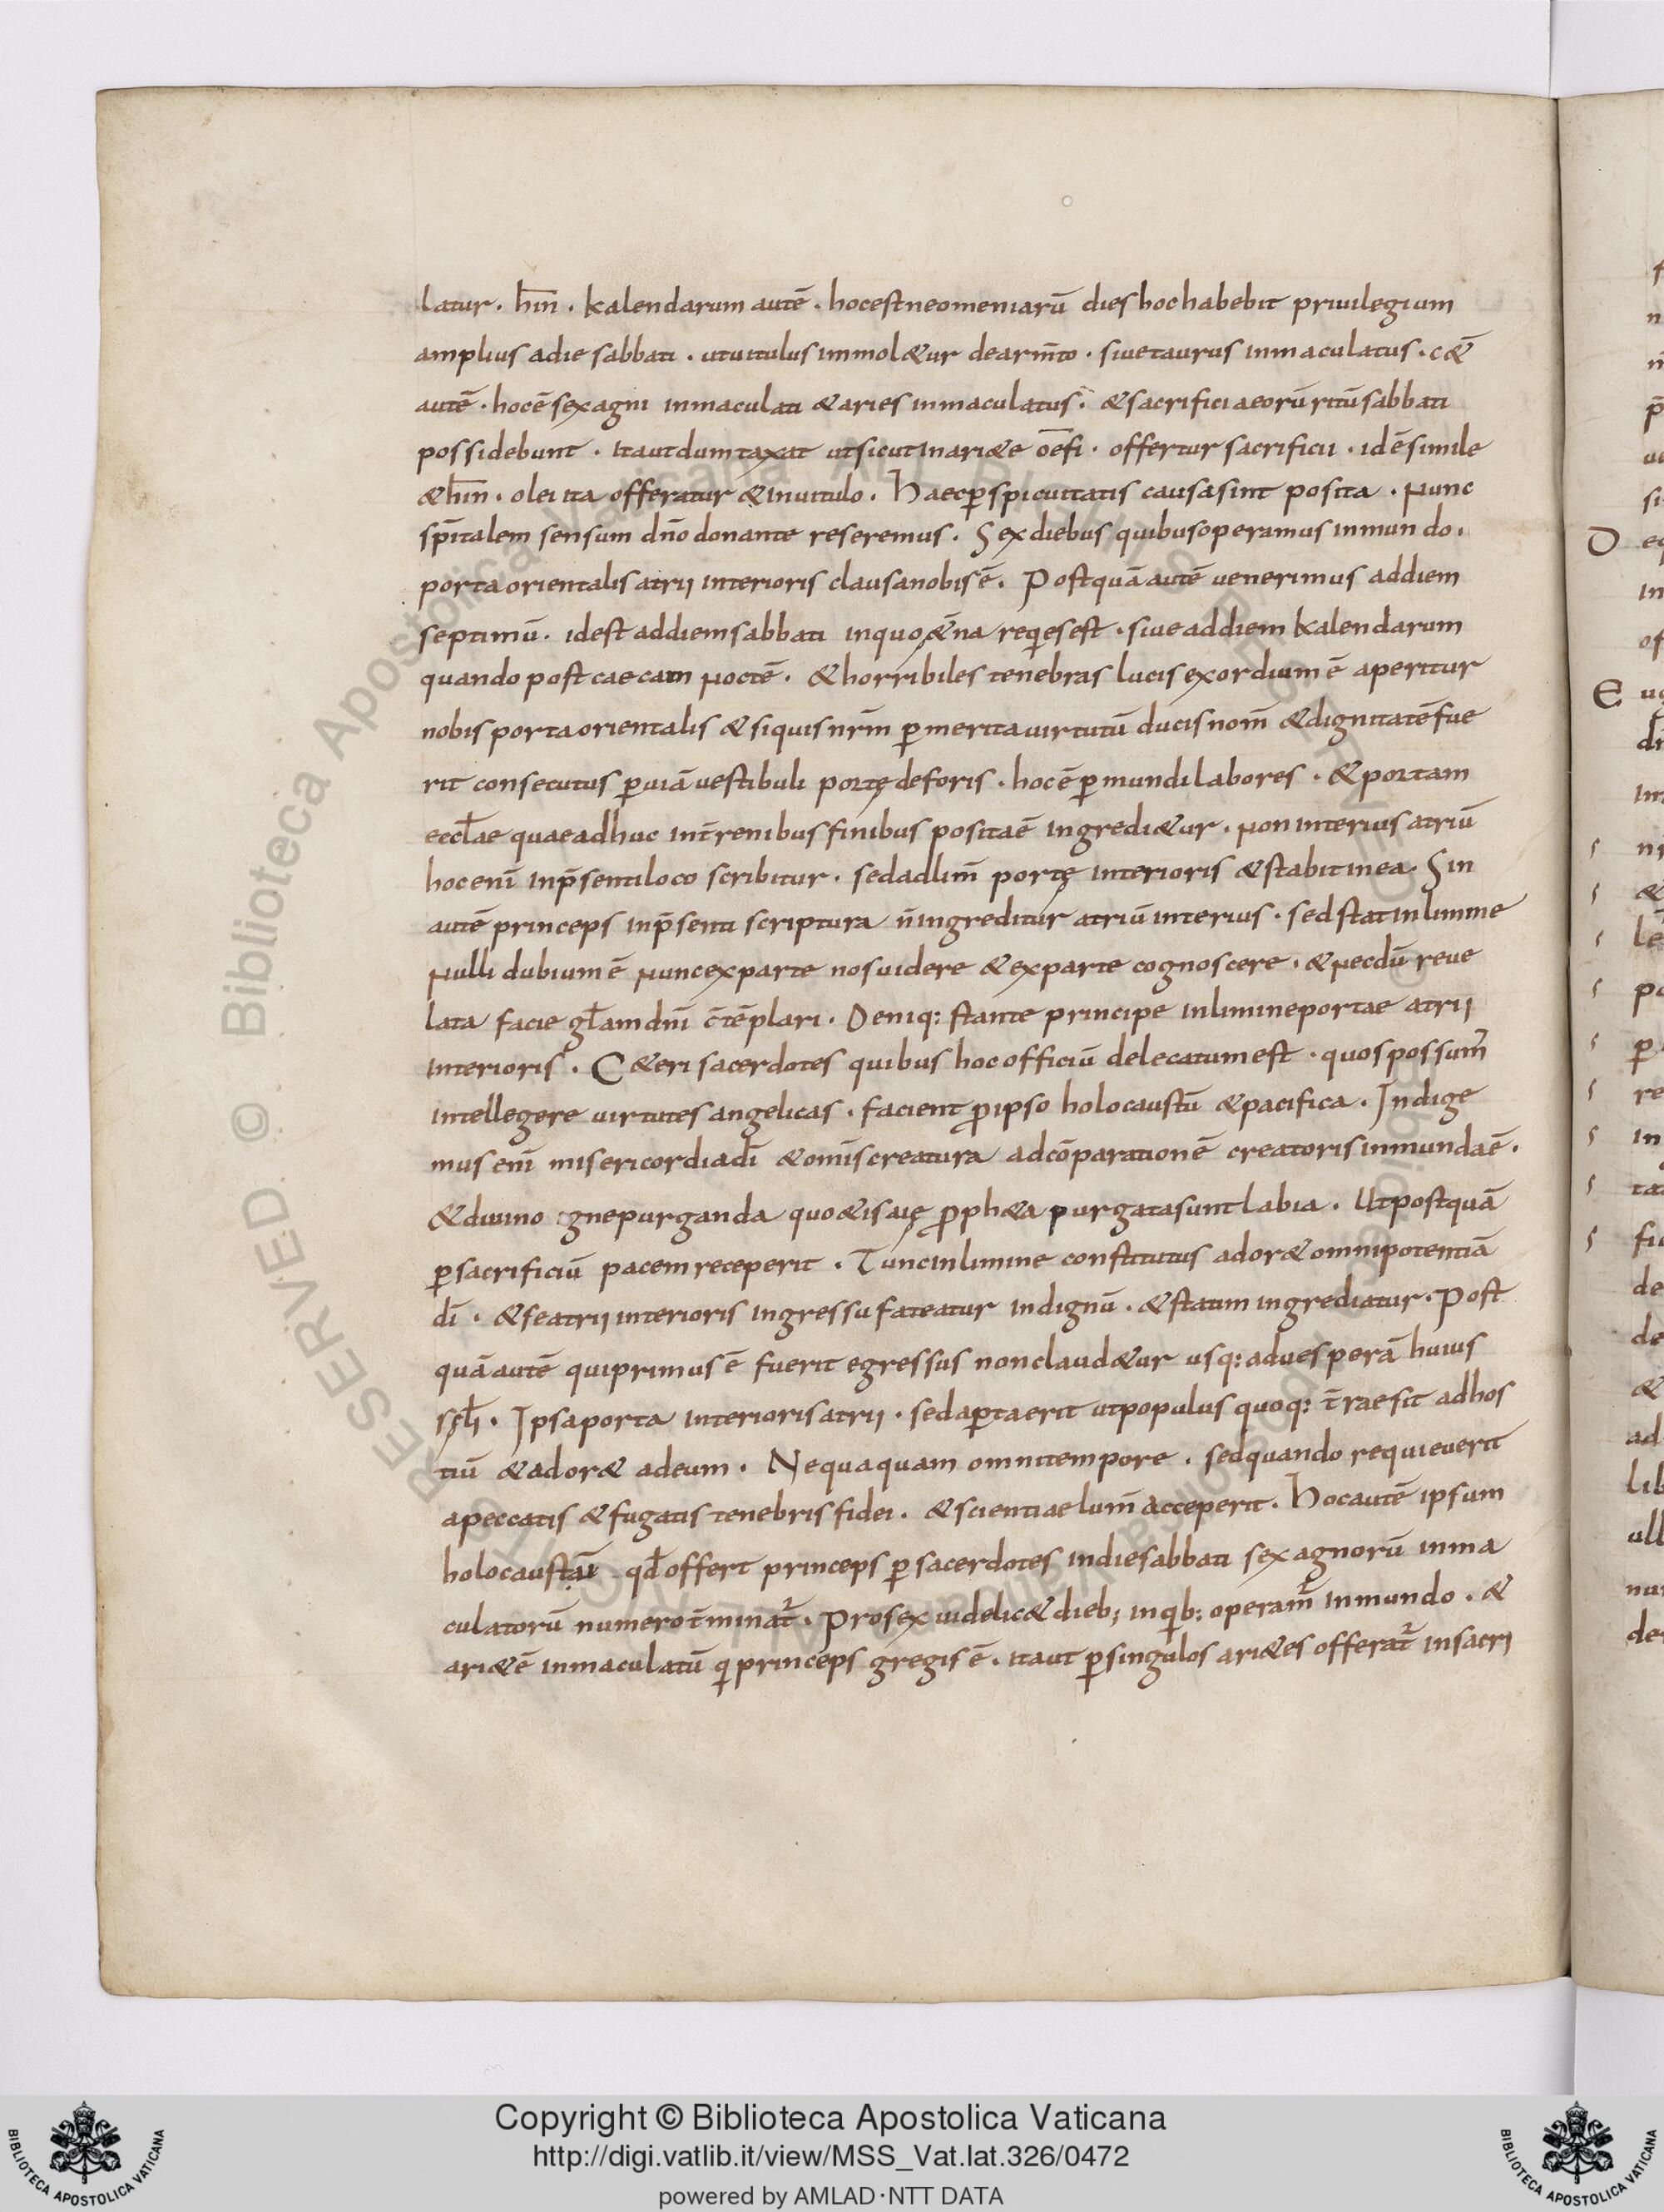 latur · hin̄ · kalendarum autē · hocest neomeniarū dies hoc habebit priuilegium
amplius adie sabbati · utuitulus immol&ur dearm̄to · siue taurus inmaculatus · c&̄
autē · hocē sex agni inmaculati & aries inmaculatus · & sacrificia eorū ritū sabbati
possidebunt · itautdumtaxat utsicut inari&e oēfi · offertur sacrificii · idē simile
& hin̄ · olei ita offeratur & inuitulo · Haec ꝑspicuitatis causa sint posita · Nunc
sp̄italem sensum dn̄o donante reseremus · Sex diebus quibus operamus inmundo ·
porta orientalis atrii interioris clausa nobis ē · Postquā autē uenerimus addiem
septimū · idest addiem sabbati inquo ę&̄na reqͥes est · siue addiem kalendarum
quando post caecam Noctē · & horribiles tenebras lucis exordium ē aperitur
nobis porta orientalis & siquis nr̄m ꝑ merita uirtutū ducis nom̄ & dignitatē fue
rit consecutus ꝑ uiā uestibuli portę deforis · hocē ꝑ mundi labores · & portam
eccl̄ae quae adhuc int̄renibus finibus posita ē ingredi&ur · Non interius atriū
hoc enī inp̄senti loco scribitur · sed adlim̄ portę interioris & stabit inea · Sin
autē princeps inp̄senti scriptura n̄ ingreditur atriū interius · sed stat inlimine
Nulli dubium ē Nunc exparte nos uidere & exparte cognoscere · & Necdū reue
lata facie gl̄am dn̄i c̄tēplari · Deniq: stante principe inlimine portae atrii
interioris · C&eri sacerdotes quibus hoc officiū delecatum est · quos possum̄
intellegere uirtutes angelicas · facient ꝓ ipso holocaustū & pacifica · Indige
mus enī misericordia dī & omīs creatura adcōparationē creatoris inmunda ē ·
& diuino gne purganda quo & isaię ꝓph&a purgata sunt labia · Ut postquā
ꝑ sacrificiū pacem receperit · Tunc inlimine constitutus ador& omnipotentiā
dī · & se atrii interioris ingressu fateatur indignū · & statim ingrediatur · Post
quā autē qui primus ē fuerit egressus non claud&ur usq: aduesperā huius
sc̄li · Ipsa porta interioris atrii · sed aꝑta erit ut populus quoq: t̄rae sit adhos
tiū & ador& adeum · Nequaquam omni tempore · sed quando requieuerit
apeccatis & fugatis tenebris fidei · & scientiae lum̄ acceperit · Hoc autē ipsum
qd̄ offert princeps ꝑ sacerdotes indie sabbati sex agnorū inma
culatorū numero t̄minat̄ · Pro sex uidelic& dieb; inqͥb; operam̄ inmundo · &
ari&ē inmaculatū qͥ princeps gregis ē · itaut ꝑ singulos ari&es offerat̄ insacri
Copyright © Biblioteca Apostolica Vaticana
http://digi.vatlib.it/view/MSS_Vat.lat.326/0472
powered by AMLAD·NTT DATA